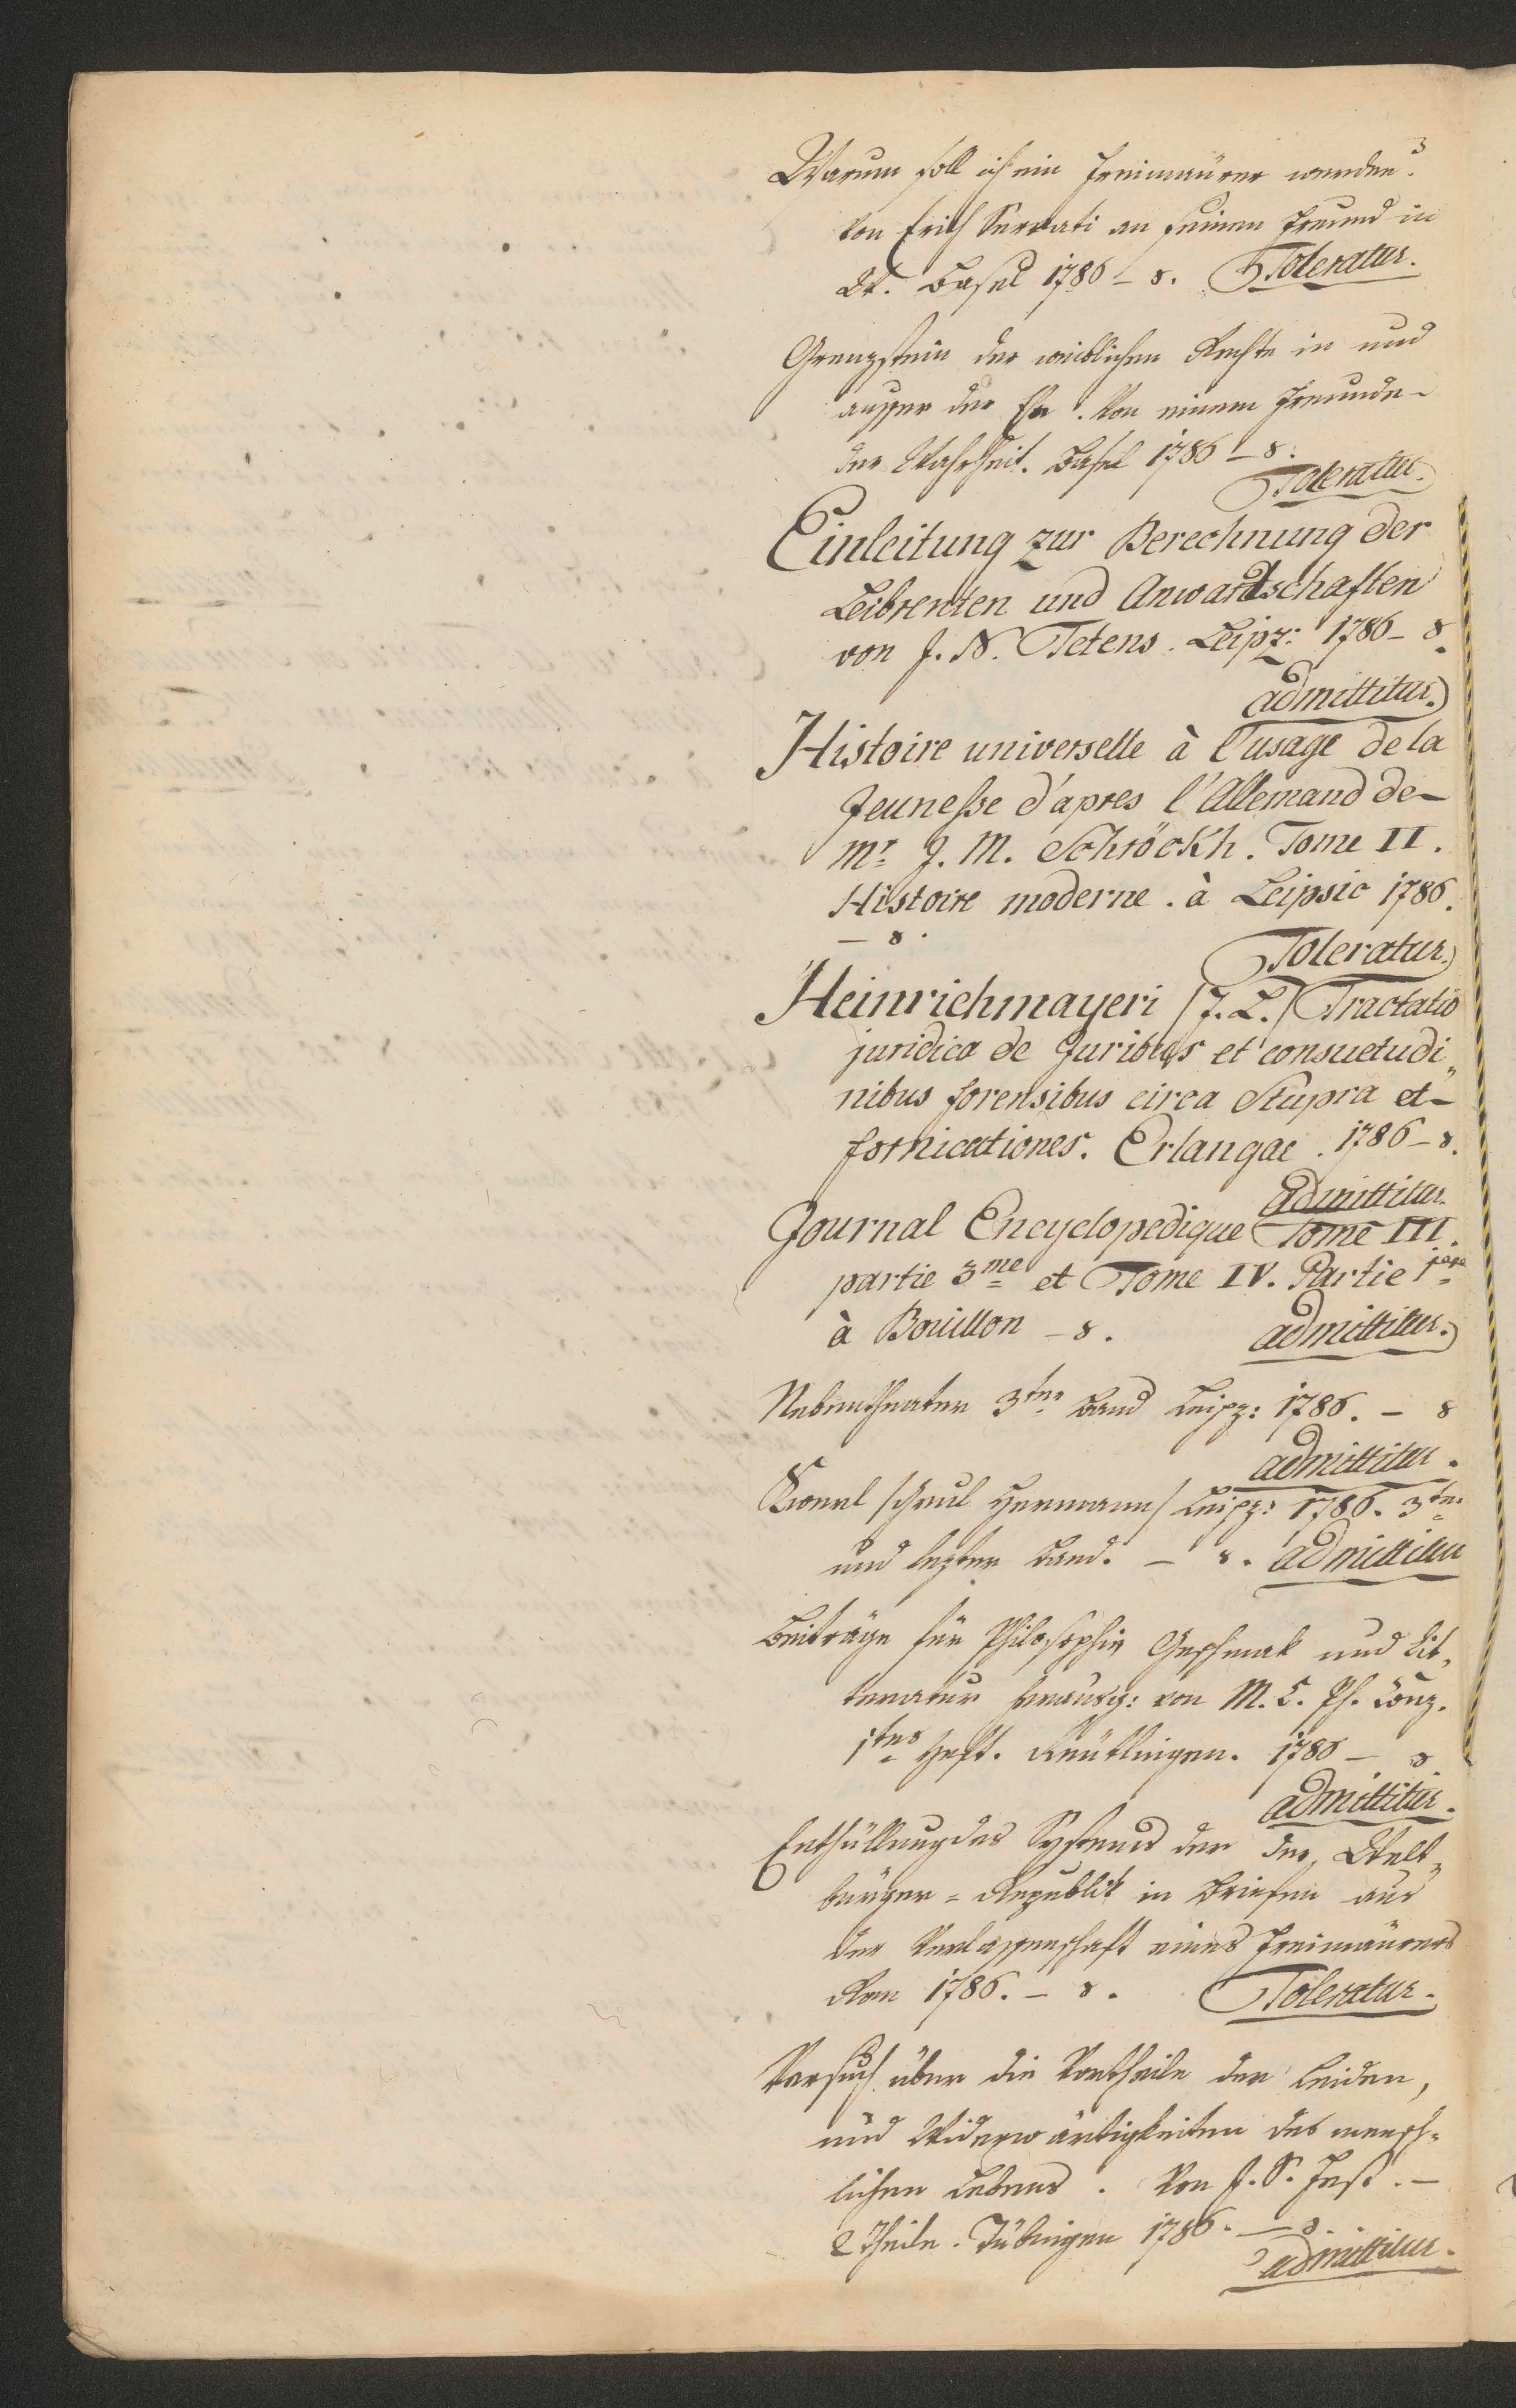 Warum soll ich ein Freimaürer werden?
von Erich Servati an seinen Freund in
Dt. Basel 1786 – 8. Toleratur.
Grenzstein der weiblichen Rechte in und
ausser der Ee. Von einem Freunde –
der Wahrheit. Basel 1786 – 8.
Toleratur.
Einleitung zur Berechnung der
Leibrenten und Anwartschaften
von J. N. Tetens. Leipz: 1786 – 8.
admittitur.
Histoire universelle à l'usage de la
Jeunesse d'apres l'Allemand de –
Mr. J. M. Schröckh. Tome II.
Histoire moderne. à Leipsic 1786.
– 8.
Toleratur.
Heinrichmayeri /J. L./ Tractatio
juridica de Juribus et consuetudi„
nibus forensibus circa Stupra et –
fornicationes. Erlangae. 1786 – 8.
Admittitur.
Journal Encyclopedique Tome III.
partie 3me et Tome IV. Partie 1ere
à Bouillon – 8. admittitur.
Nebentheater 3ter Band Leipz: 1786. – 8
admittitur.
/Paul Hermann/ Leipz: 1786. 3ter
und lezter Band. – 8. admittitur
Beiträge für Philosophie Geschmak und Lit„
teratur herausg: von M. C. Ph. Conz.
1tes Heft. Reütlingen. 1786 – 8
admittitur.
Enthüllung des Systems der der Welt„
bürger = Republik in Briefen aus
der Verlassenschaft eines Freimaürers
Rom 1786. – 8. Toleratur.
Versuch über die Vortheile der Leiden,
und Widerwärtigkeiten des mensch„
lichen Lebens. Von J. S. Fest. –
2 Theile. Tübingen 1786. – 8.
admittitur.